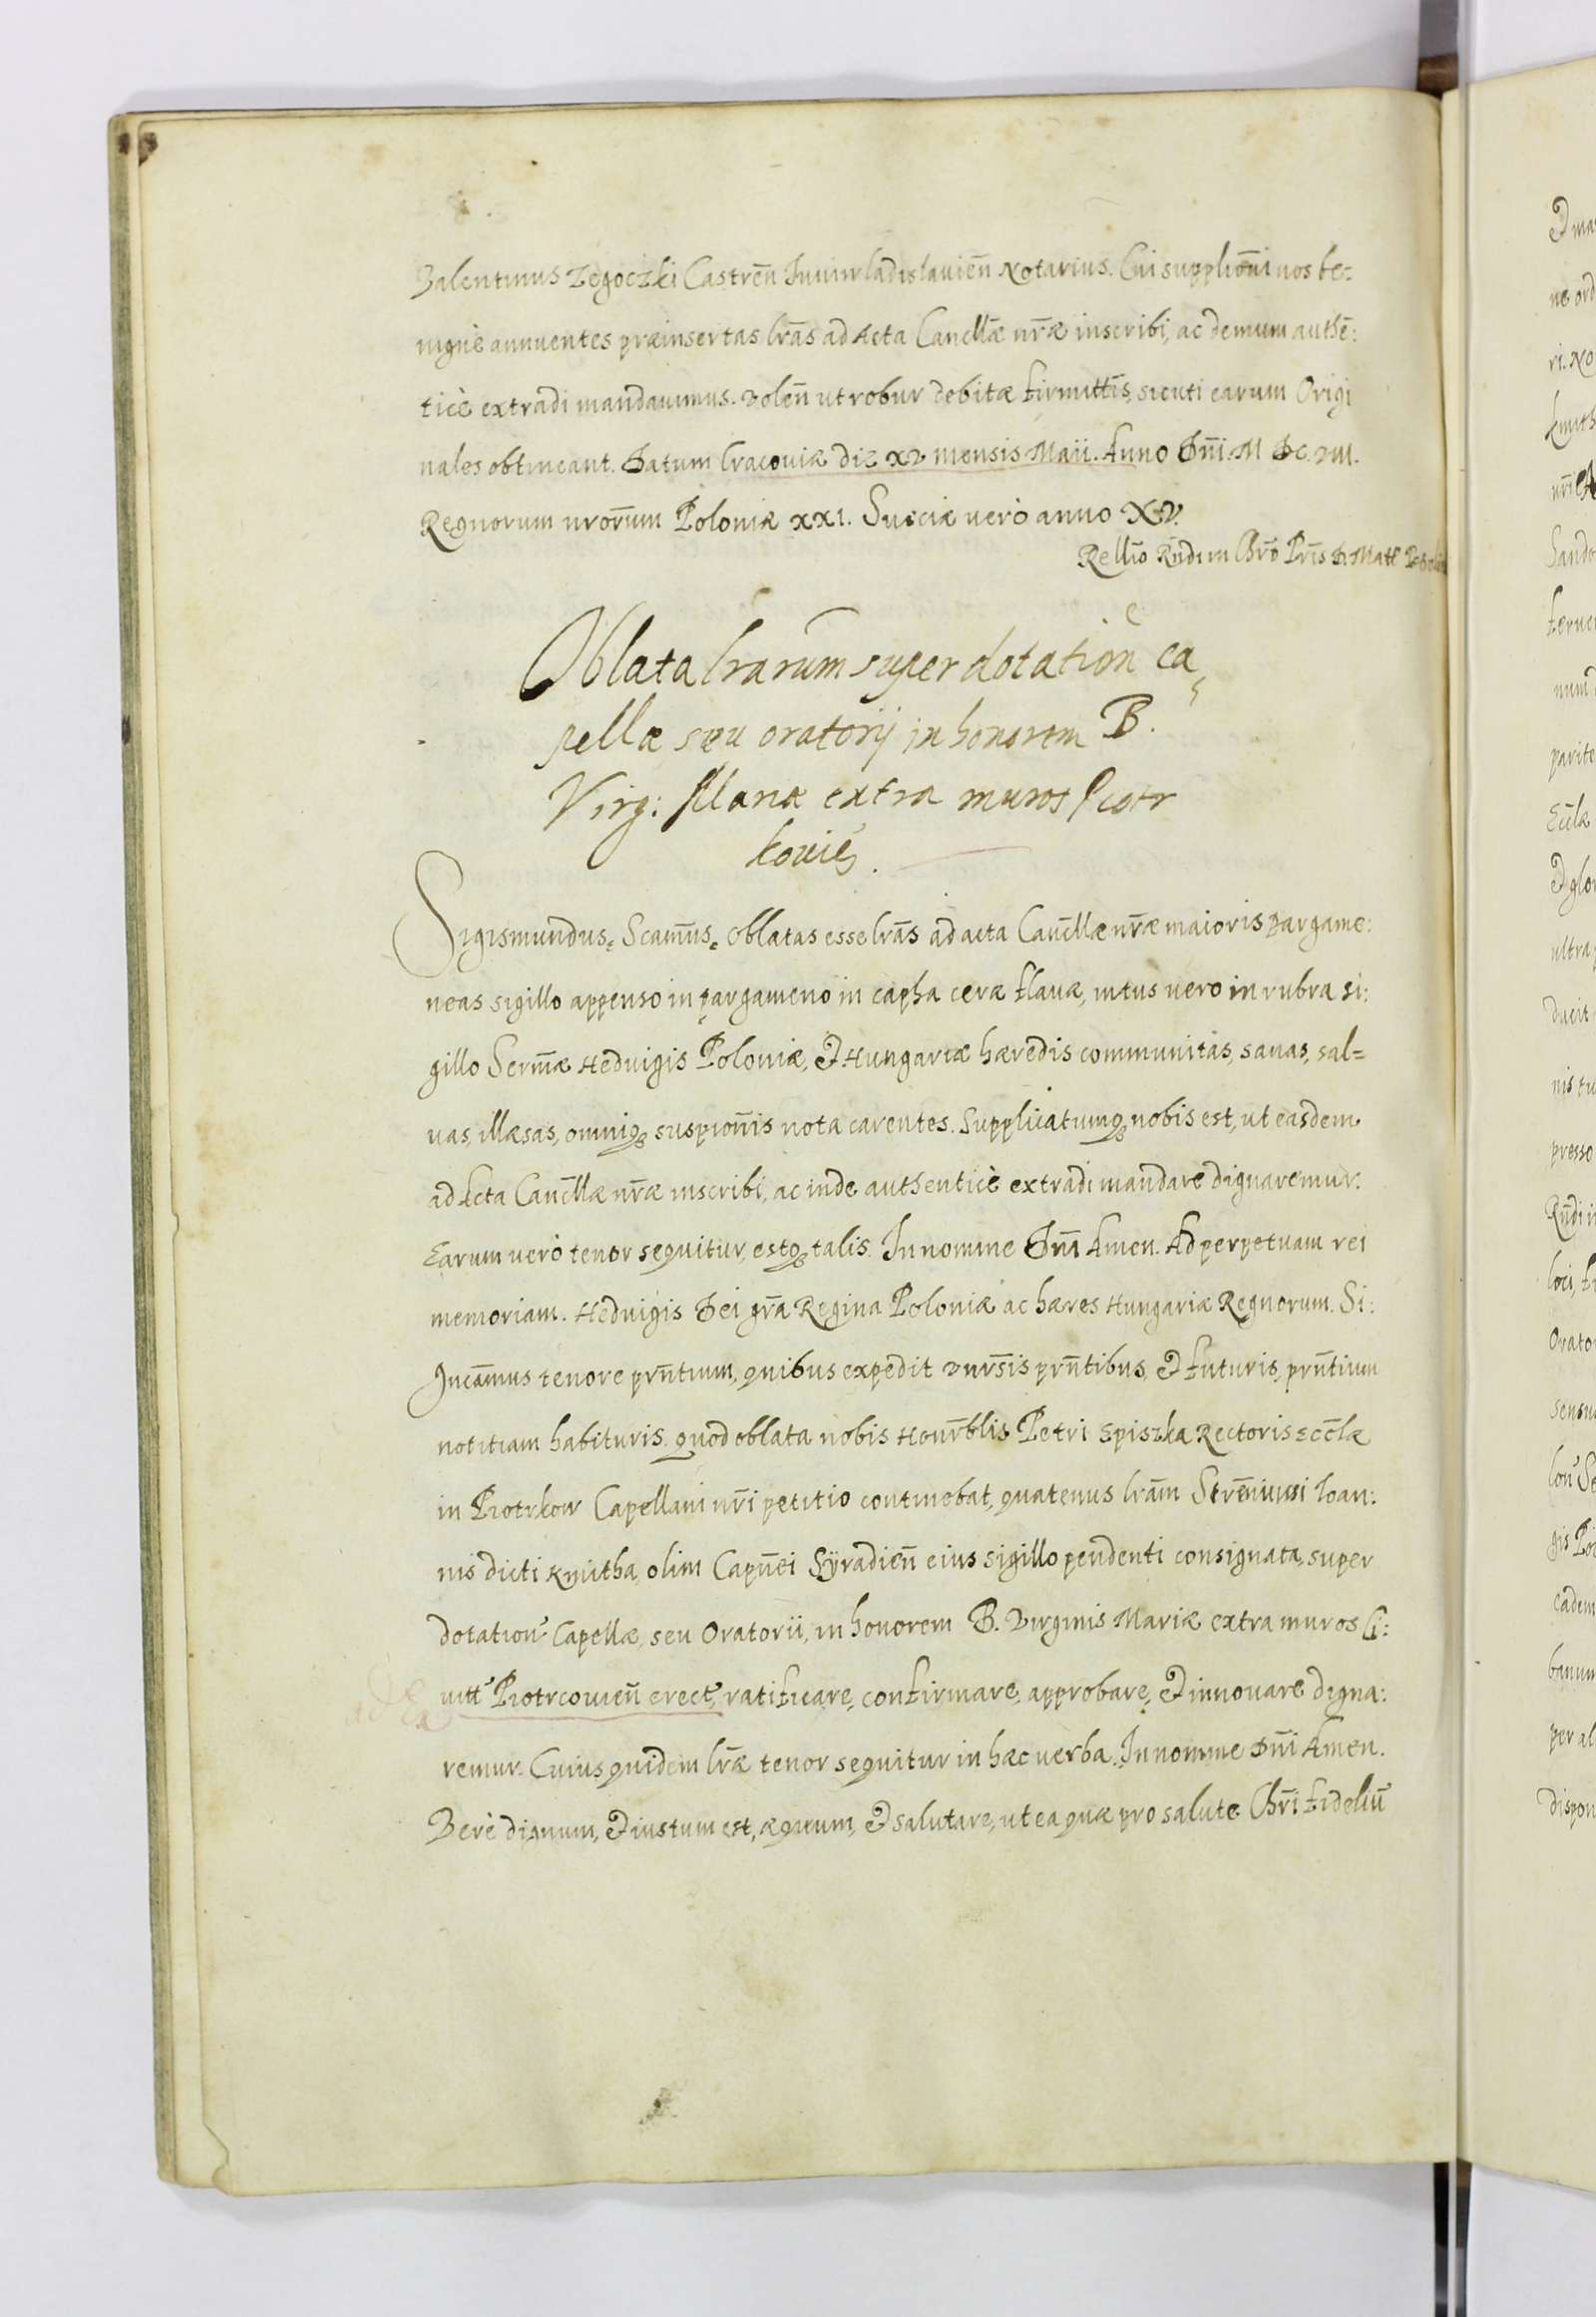 Valentinus Zegoczki Castreñ Iuniwladislavieñ Notarius. Cui supplioñi nos be-
nignè annuentes præinsertas lr̃as ad Acta Cancll̃æ nr̃æ inscribi, ac demum authē:
ticè extradi mandavimus. Voleñ ut robur debitæ firmitt̃is, sicuti earum Origi
nales obtineant. Datum Cracoviæ die XV mensis Maii. Anno Dñi. M DC. VIII.
Regnorum nror̃um Poloniæ XXI. Sueciæ verò anno XV.
Rellĩo Rñdi in Chr̃o Pr̃is D. Matt
Oblata lrarum̃ super dotatioñe ca
pellæ seu oratorij in honorem B.
Virg: Mariæ extra muros Piotr
kovień.
Sigismundus. Scam̃us. Oblatas esse lr̃as ad acta Canc̃llæ nr̃æ maioris pargame:
neas sigillo appenso in pargameno in capha ceræ flavæ, intus vero in rubra si:
gillo Serm̃æ Hedvigis Poloniæ, & Hungariæ hæredis communitas, sanas, sal=
vas, illæsas, omniq; suspioñis nota carentes. Supplicatumq; nobis est, ut easdem
ad Acta Canc̃llæ nr̃æ inscribi, ac inde authenticè extradi mandare dignaremur.
Earum verò tenor sequitur, estq; talis. In nomine Dñi Amen. Ad perpetuam rei
memoriam. Hedvigis Dei gr̃a Regina Poloniæ ac hæres Hungariæ Regnorum. Si:
gnicam̃us tenore prñtium, quibus expedit vnr̃sis prñtibus, & futuris, prñtium
notitiam habituris. quod oblata nobis Honr̃blis Petri Episzka Rectoris Ecc̃læ
in Piotrkow Capellani nr̃i petitio continebat, quatenus lr̃am Strēnuissi Ioan:
nis dicti Kmitha, olim Capñei Syradieñ eius sigillo pendenti consignata, super
dotation̄ Capellæ, seu Oratorii, in honorem B. Virginis Mariæ extra muros Ci:
vitt̃ Piotrcovieñ erect̃, ratificare, confirmare, approbare, & innovare digna:
remur. Cuius quidem lr̃æ tenor sequitur in hæc verba. In nomine Dñi Amen.
Verè dignum, & iustum est, æquum, & salutare, ut ea quæ pro salute Chr̃i fideliũ